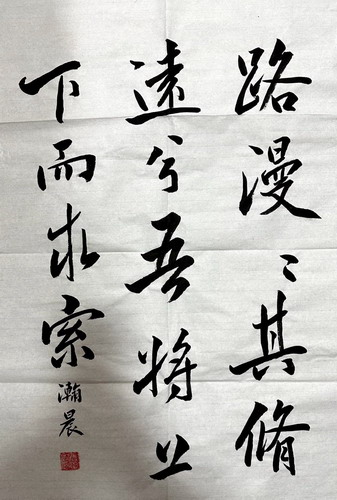 路漫〻其脩
遠兮吾將上
下而求索
瀚晨